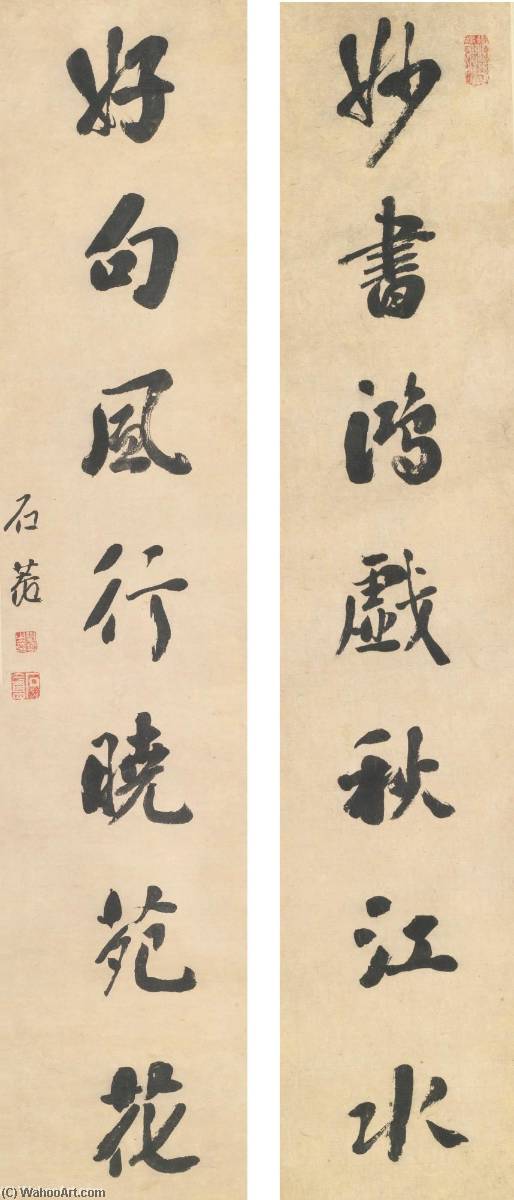 妙書鴻戲秋江水
好句風行曉苑花
石菴
(C) WahooArt.com